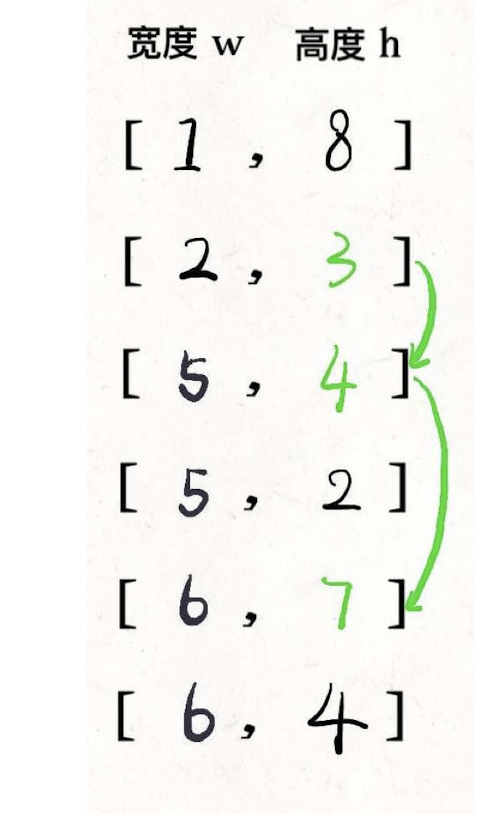 宽度 w 高度 h
[ 1 , 8 ]
[ 2 , 3 ]
[ 5 , 4 ]
[ 5 , 2 ]
[ 6 , 7 ]
[ 6 , 4 ]